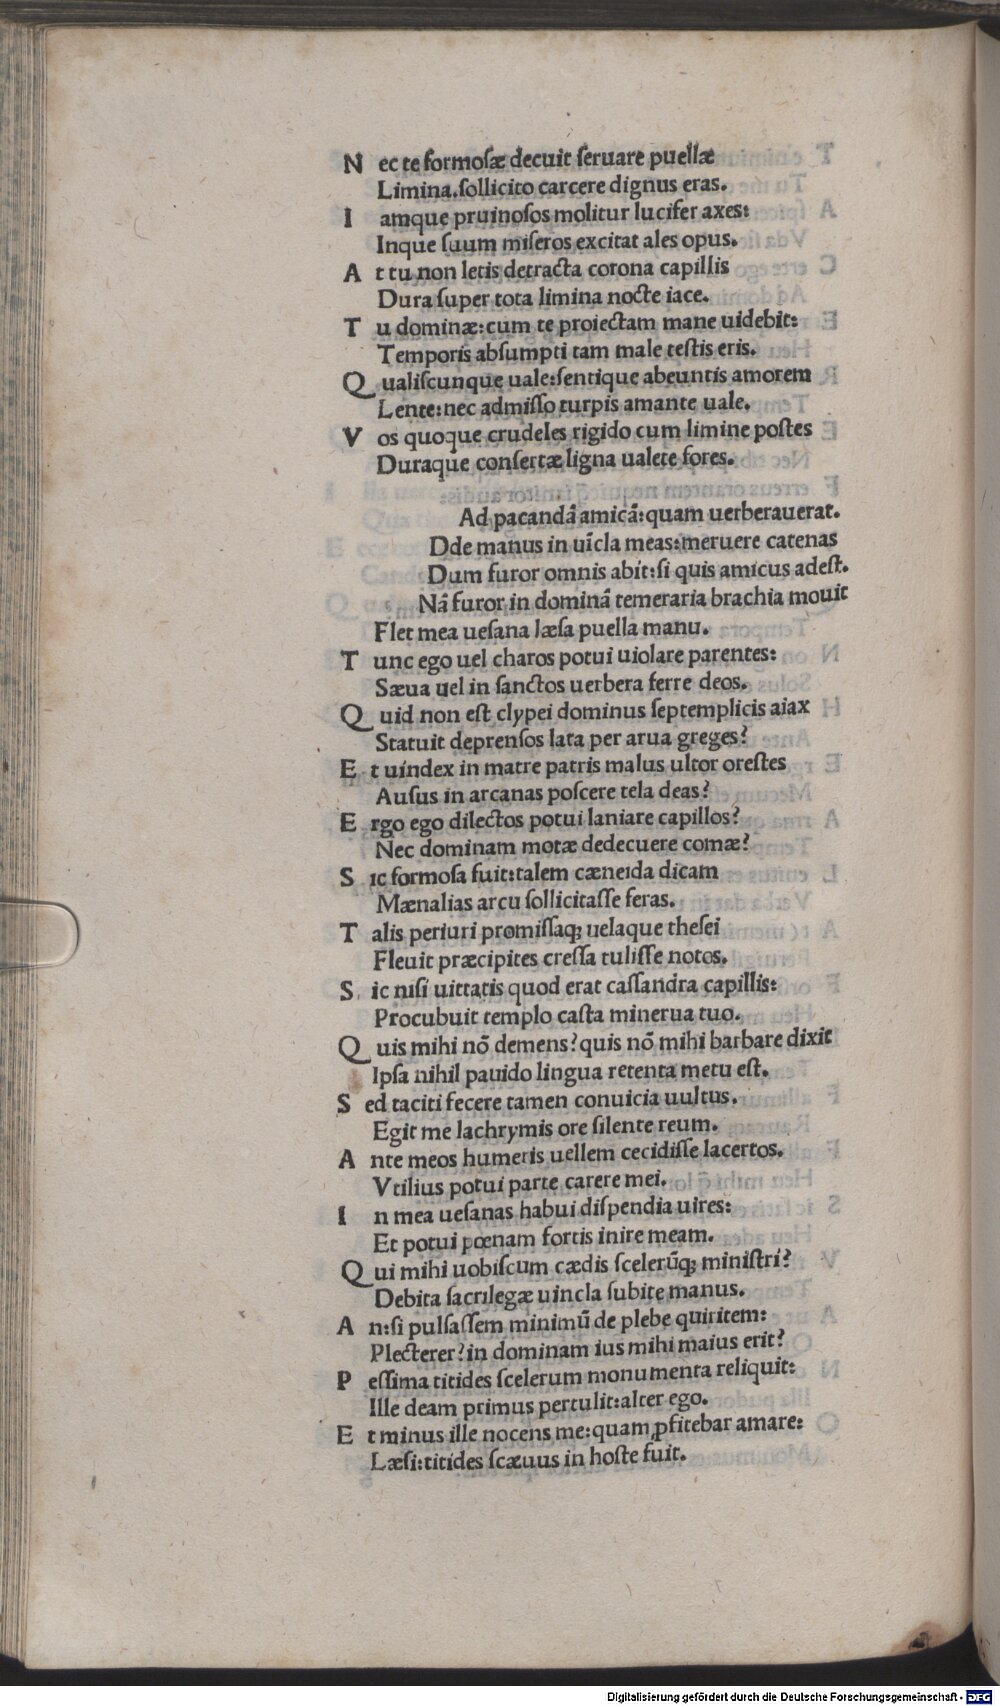 N ec te formosæ decuit seruare puellæ
Limina.sollicito carcere dignus eras.
I amque pruinosos molitur lucifer axes:
Inque suum miseros excitat ales opus.
A t tu non letis detracta corona capillis
Dura super tota limina nocte iace.
T u dominæ:cum te proiectam mane uidebit:
Temporis absumpti tam male testis eris.
Q ualiscunque uale:sentique abeuntis amorem
Lente:nec admisso turpis amante uale.
V os quoque crudeles rigido cum limine postes
Duraque consertæ ligna ualete fores.
Ad pacandā amicā:quam uerberauerat.
Dde manus in uīcla meas:meruere catenas
Dum furor omnis abit:si quis amicus adest.
Nā furor in dominā temeraria brachia mouit
Flet mea uesana læsa puella manu.
T unc ego uel charos potui uiolare parentes:
Sæua uel in sanctos uerbera ferre deos.
Q uid non est clypei dominus septemplicis aiax
Statuit deprensos lata per arua greges?
E t uindex in matre patris malus ultor orestes
Ausus in arcanas poscere tela deas?
E rgo ego dilectos potui laniare capillos?
Nec dominam motæ dedecuere comæ?
S ic formosa fuit:talem cæneida dicam
Mænalias arcu sollicitasse feras.
T alis periuri promissaq; uelaque thesei
Fleuit præcipites cressa tulisse notos.
S ic nisi uittatis quod erat cassandra capillis:
Procubuit templo casta minerua tuo.
Q uis mihi nō demens?quis nō mihi barbare dixit
Ipsa nihil pauido lingua retenta metu est.
S ed taciti fecere tamen conuicia uultus.
Egit me lachrymis ore silente reum.
A nte meos humeris uellem cecidisse lacertos.
Vtilius potui parte carere mei.
I n mea uesanas habui dispendia uires:
Et potui pœnam fortis inire meam.
Q ui mihi uobiscum cædis scelerūq; ministri?
Debita sacrilegæ uincla subite manus.
A n:si pulsassem minimū de plebe quiritem:
Plecterer?in dominam ius mihi maius erit?
P essima titides scelerum monumenta reliquit:
Ille deam primus pertulit:alter ego.
E t minus ille nocens me:quam ꝓfitebar amare:
Læsi:titides scæuus in hoste fuit.
Digitalisierung gefördert durch die Deutsche Forschungsgemeinschaft - DFG